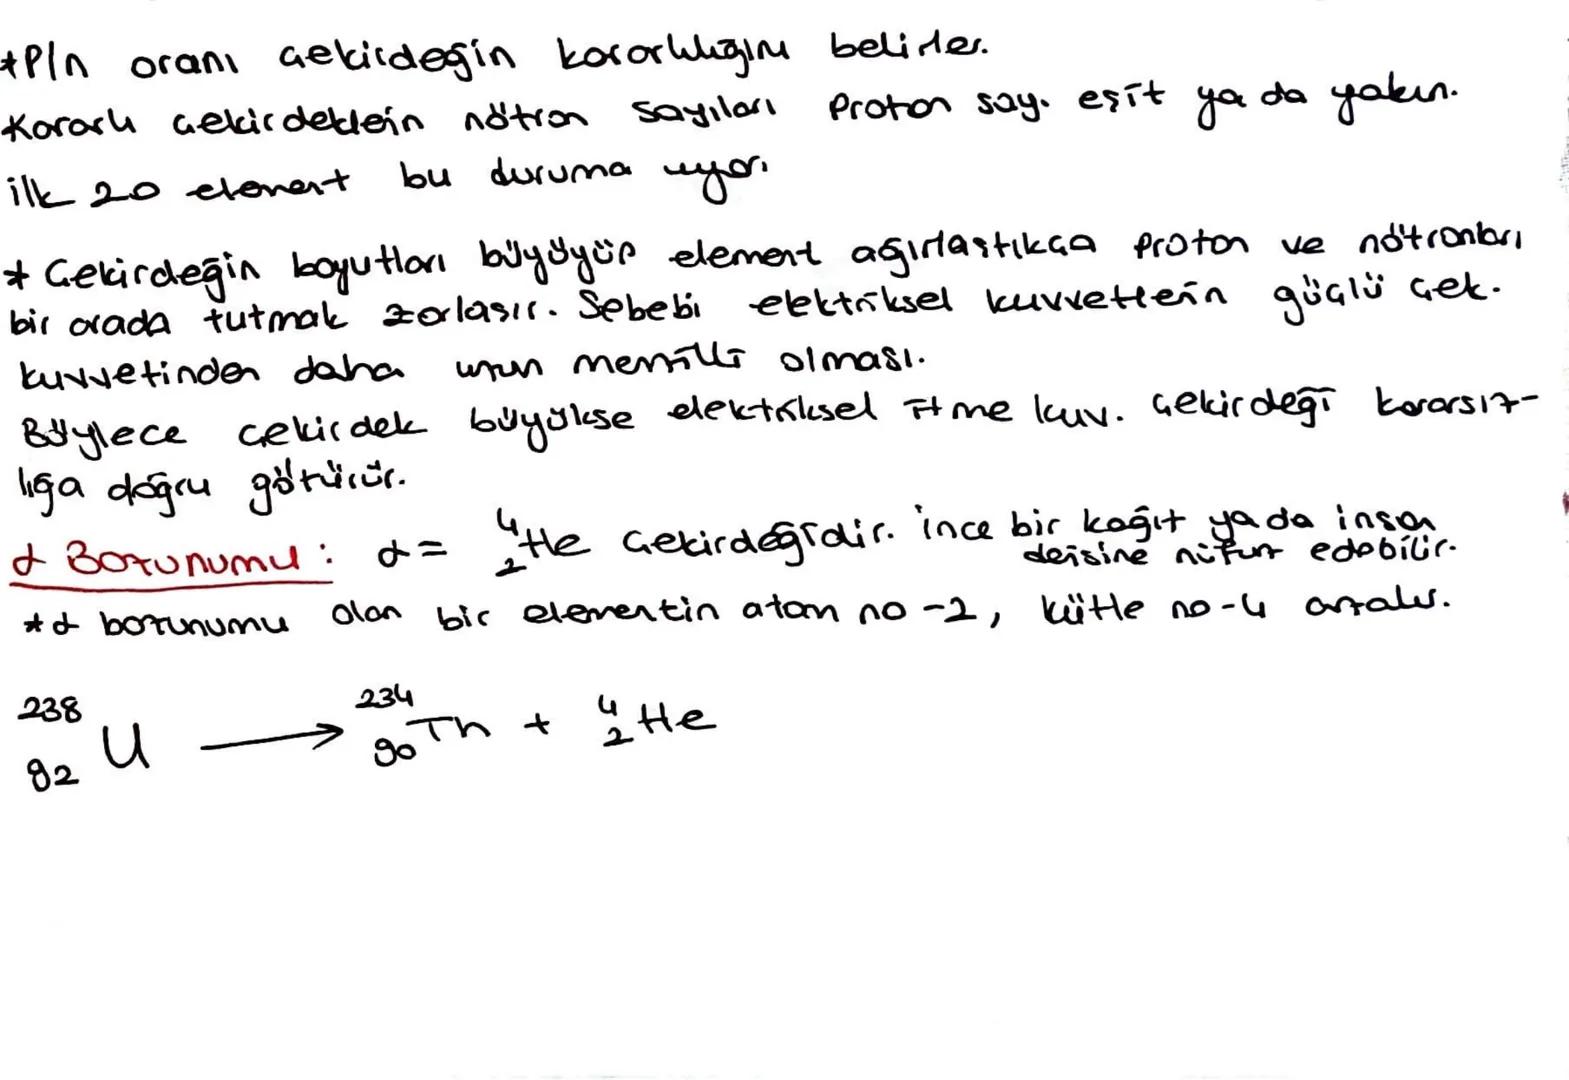 *P/n oranı çekirdeğin kararlılığını belirler.
Kararlı çekirdeklerin nötron sayıları proton say. eşit ya da yakın.
ilk 20 element bu duruma uyar.
* Çekirdeğin boyutları büyüyüp element ağırlaştıkça proton ve nötronları
bir arada tutmak zorlaşır. Sebebi elektriksel kuvvetlerin güçlü çek.
kuvvetinden daha uzun menzilli olması.
Böylece çekirdek büyükse elektriksel itme kuv. çekirdeği kararsız-
lığa doğru götürür.
α Bozunumu: α= ⁴₂He çekirdeğidir. ince bir kağıt ya da insan
derisine nüfuz edebilir.
*α bozunumu olan bir elementin atom no -2, kütle no -4 azalır.
²³⁸₉₂U ⟶ ²³⁴₉₀Th + ⁴₂He